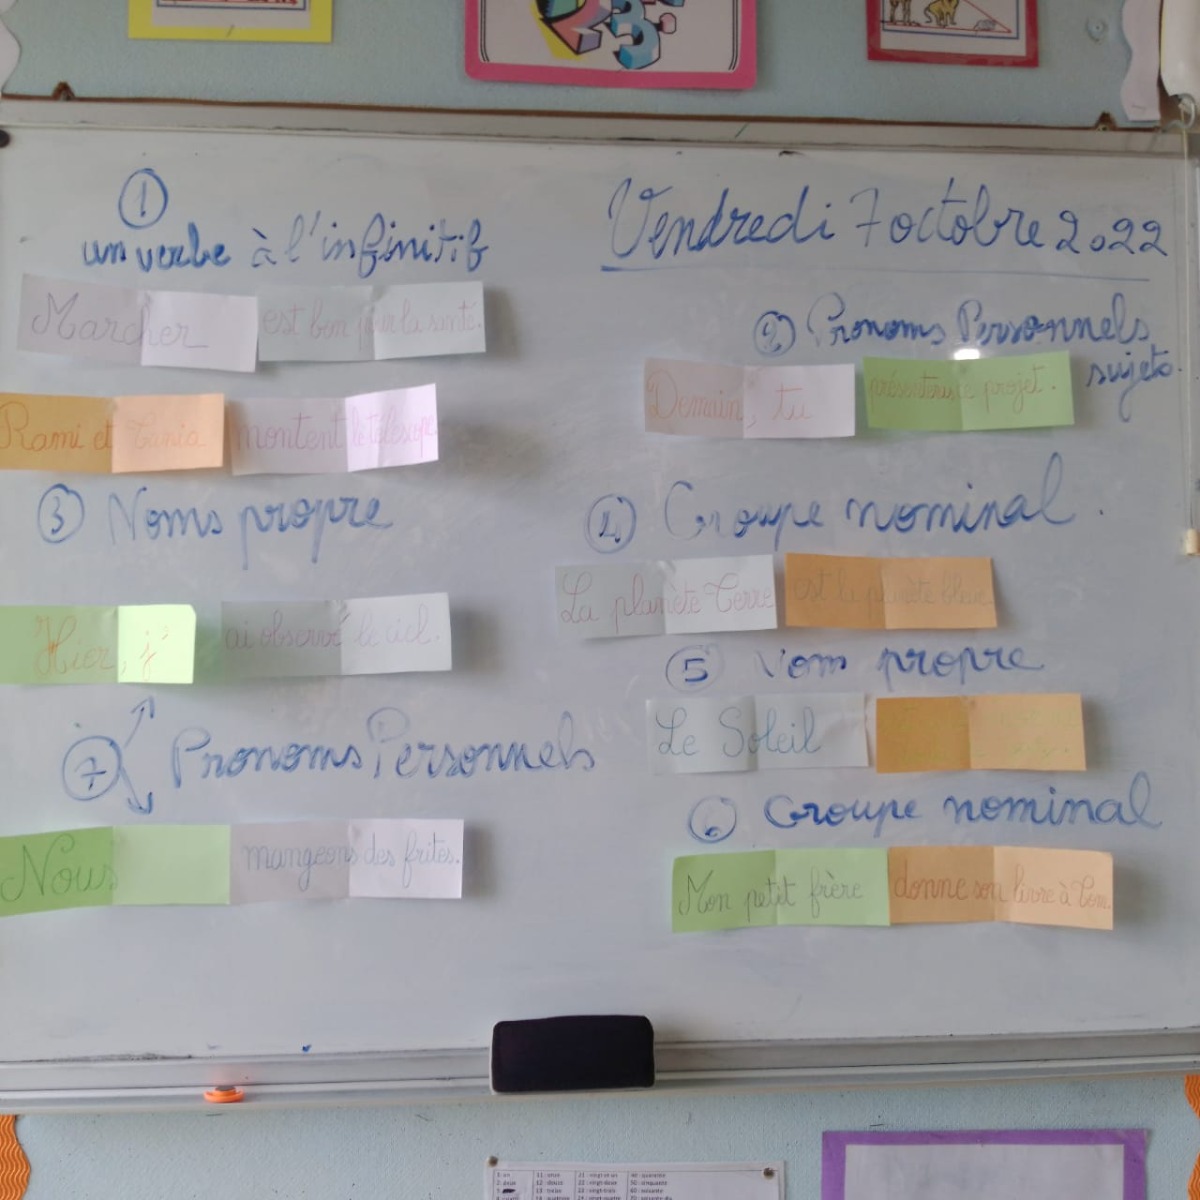 Vendredi 7 octobre 2022
① un verbe à l'infinitif
Marcher est bon pour la santé.
② Pronoms Personnels sujets.
Demain, tu présenteras projet.
Rami et Tania montent le télescope.
③ Noms propre
④ Groupe nominal.
La planète Terre est la planète bleue
Hier, j' ai observé le ciel.
⑤ Nom propre
Le Soleil
⑦ Pronoms Personnels
⑥ Groupe nominal
Nous mangeons des frites.
Mon petit frère donne son livre à Tom.